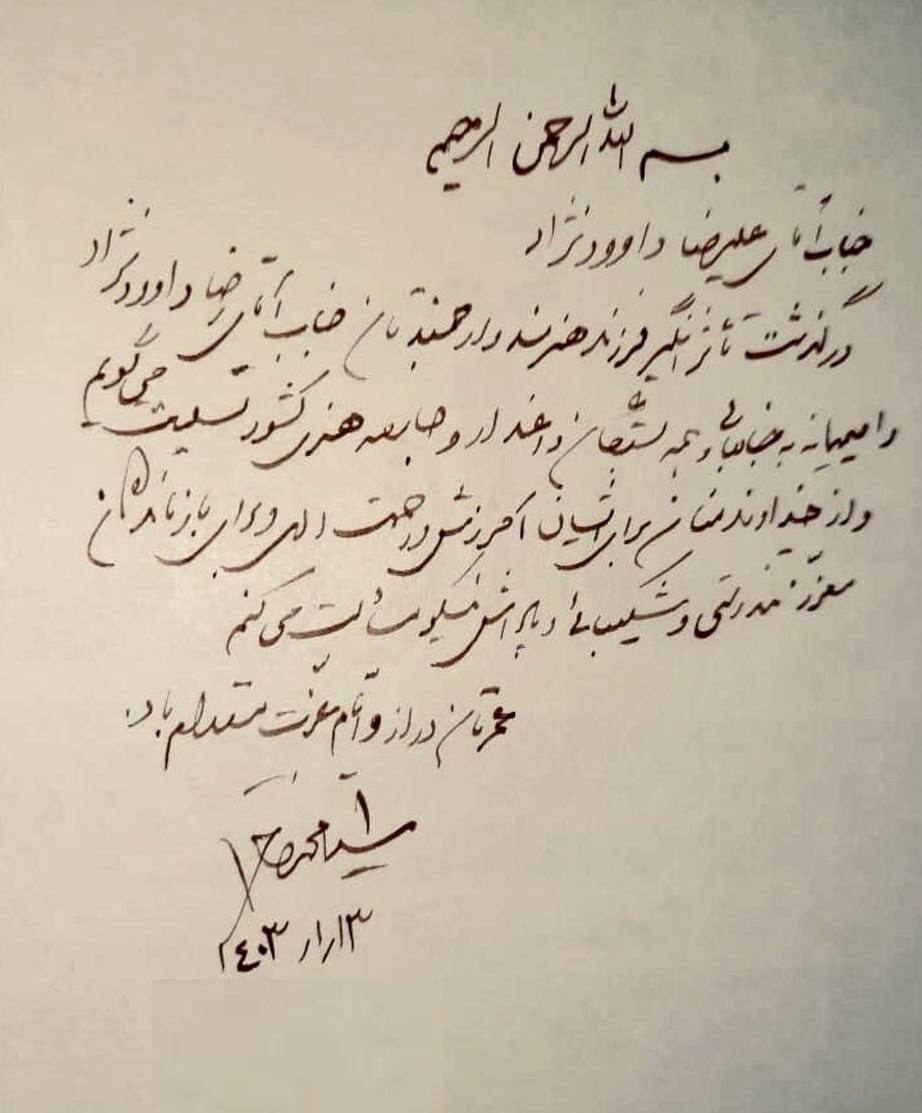 بسم الله الرحمن الرحیم
جناب آقای علیرضا داوودنژاد
درگذشت تأثرانگیز فرزند هنرمند و ارجمندتان جناب آقای رضا داوودنژاد
را صمیمانه به جنابعالی و همه بستگان داغدار و جامعه هنری کشور تسلیت می‌گویم
و از خداوند منان برای ایشان آمرزش و رحمت الهی و برای بازماندگان
معزز تندرستی و شکیبایی و پاداش نیکو مسألت می‌کنم
عمرتان دراز و ایام عزت مستدام باد.
سید محمد خاتمی
۱۳ / ۱ / ۱۴۰۳